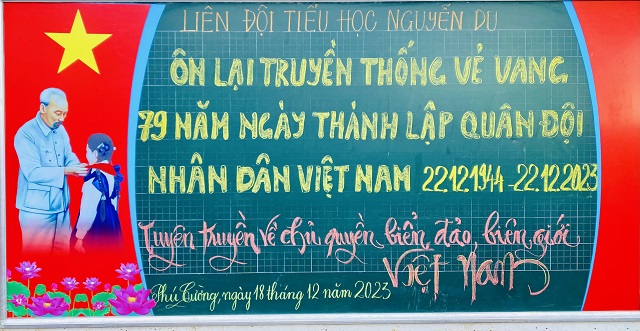 LIÊN ĐỘI TIỂU HỌC NGUYỄN DU
ÔN LẠI TRUYỀN THỐNG VẺ VANG
79 NĂM NGÀY THÀNH LẬP QUÂN ĐỘI
NHÂN DÂN VIỆT NAM 22.12.1944 - 22.12.2023
Tuyên truyền về chủ quyền biển đảo, biên giới
Việt Nam
Phú Cường, ngày 18 tháng 12 năm 2023